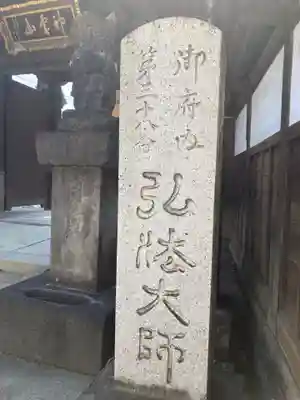 御府内
第二十八番
弘法大師
神霊山